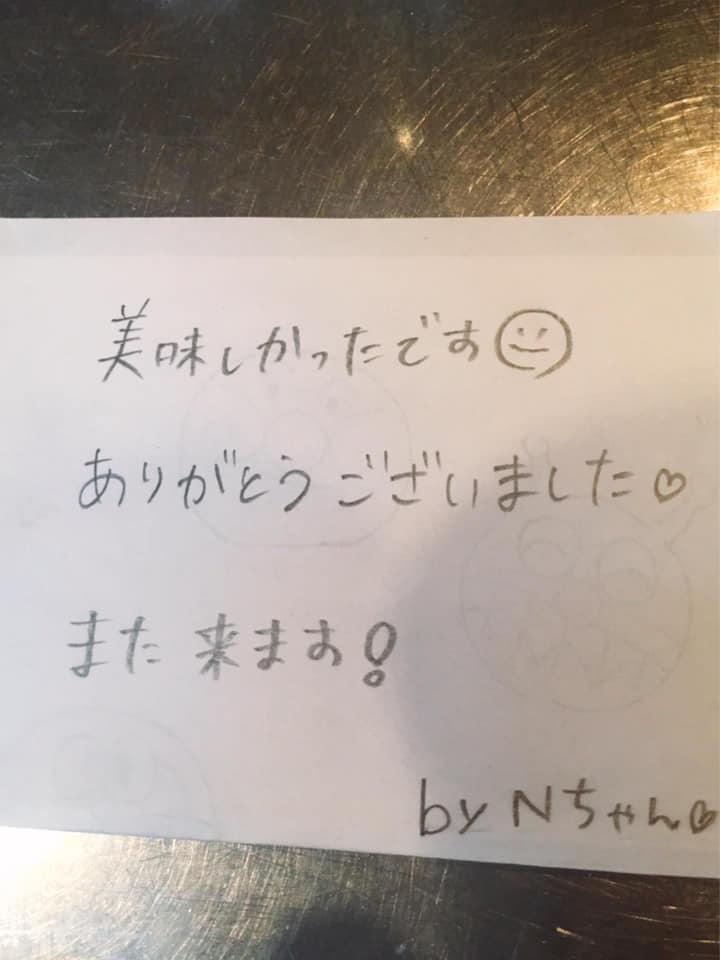 美味しかったです☺
ありがとうございました♡
また来ます!
by Nちゃん♡